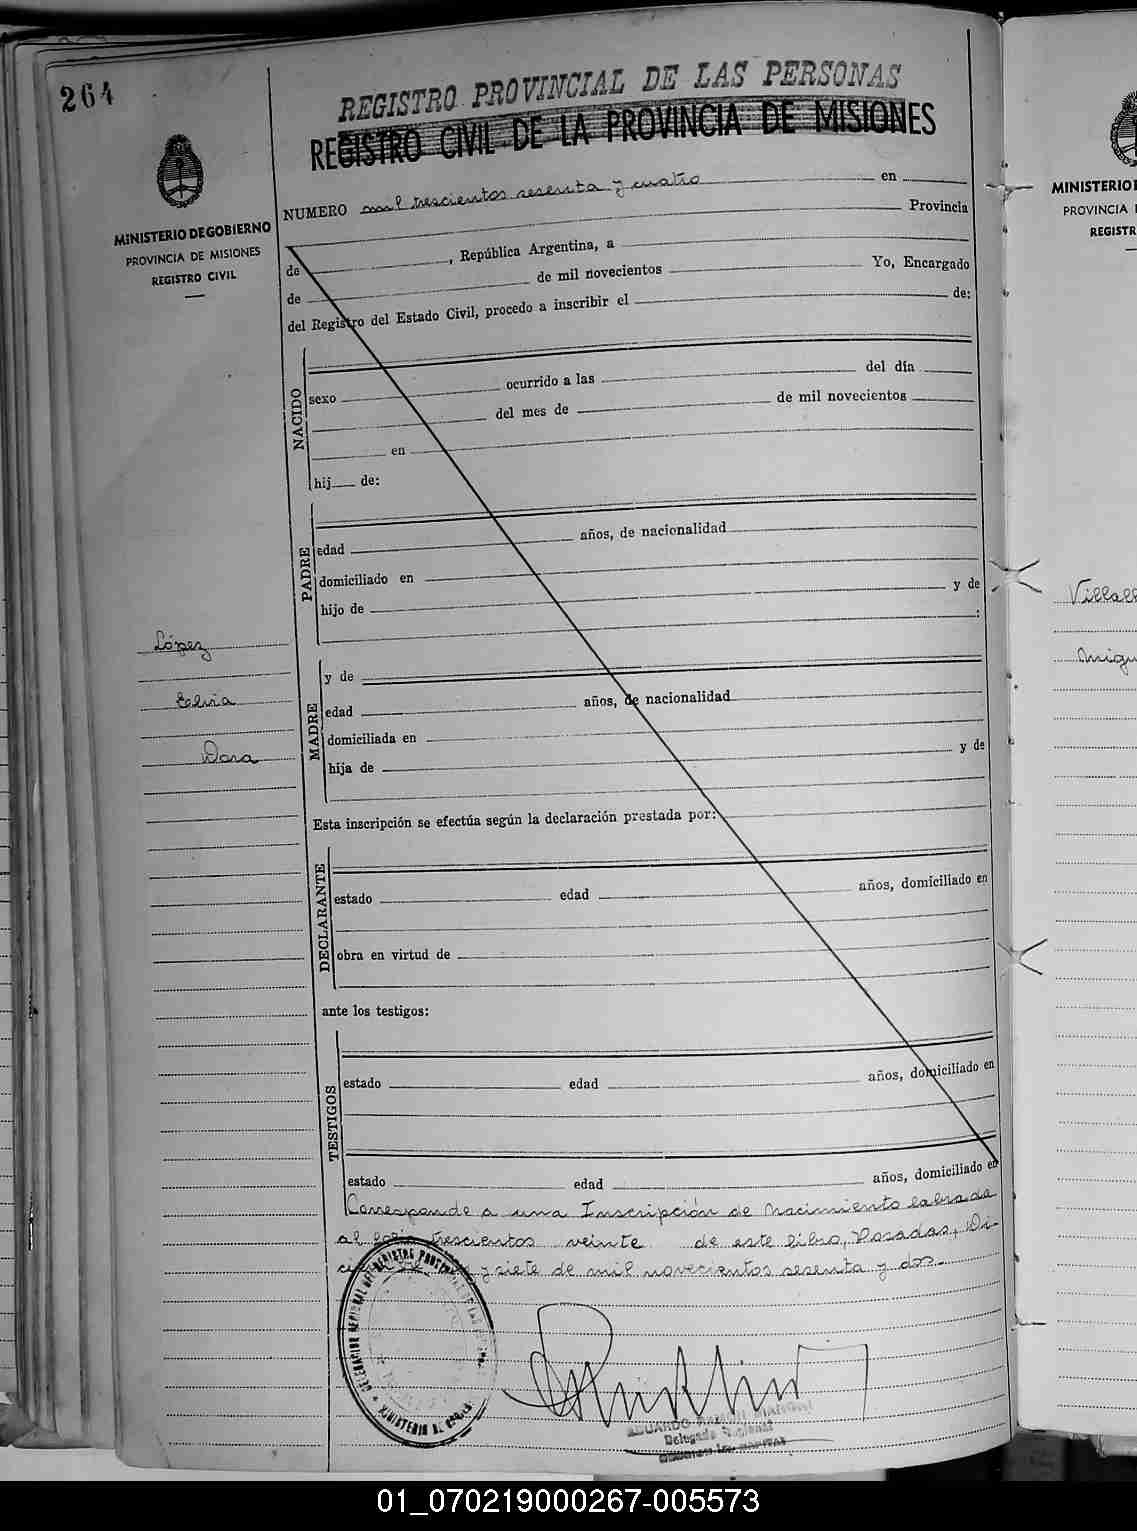 264
REGISTRO PROVINCIAL DE LAS PERSONAS
REGISTRO CIVIL DE LA PROVINCIA DE MISIONES
MINISTERIO DE GOBIERNO
PROVINCIA DE MISIONES
REGISTRO CIVIL
NUMERO mil trescientos sesenta y cuatro en
Provincia
de , República Argentina, a
de de mil novecientos Yo, Encargado
del Registro del Estado Civil, procedo a inscribir el de:
NACIDO
sexo ocurrido a las del día
del mes de de mil novecientos
en
hij de:
PADRE
edad años, de nacionalidad
domiciliado en
hijo de y de
:
López
Elvia
Dora
MADRE
y de
edad años, de nacionalidad
domiciliada en
hija de y de
Esta inscripción se efectúa según la declaración prestada por:
DECLARANTE
estado edad años, domiciliado en
obra en virtud de
ante los testigos:
TESTIGOS
estado edad años, domiciliado en
estado edad años, domiciliado en
Corresponde a una Inscripción de Nacimiento labrada
al folio trescientos veinte de este libro, Posadas, Di-
y siete de mil novecientos sesenta y dos.-
MINISTERIO DE
Delegado
MINISTERIO
PROVINCIA
REGISTR
Villal
Migu
01_070219000267-005573